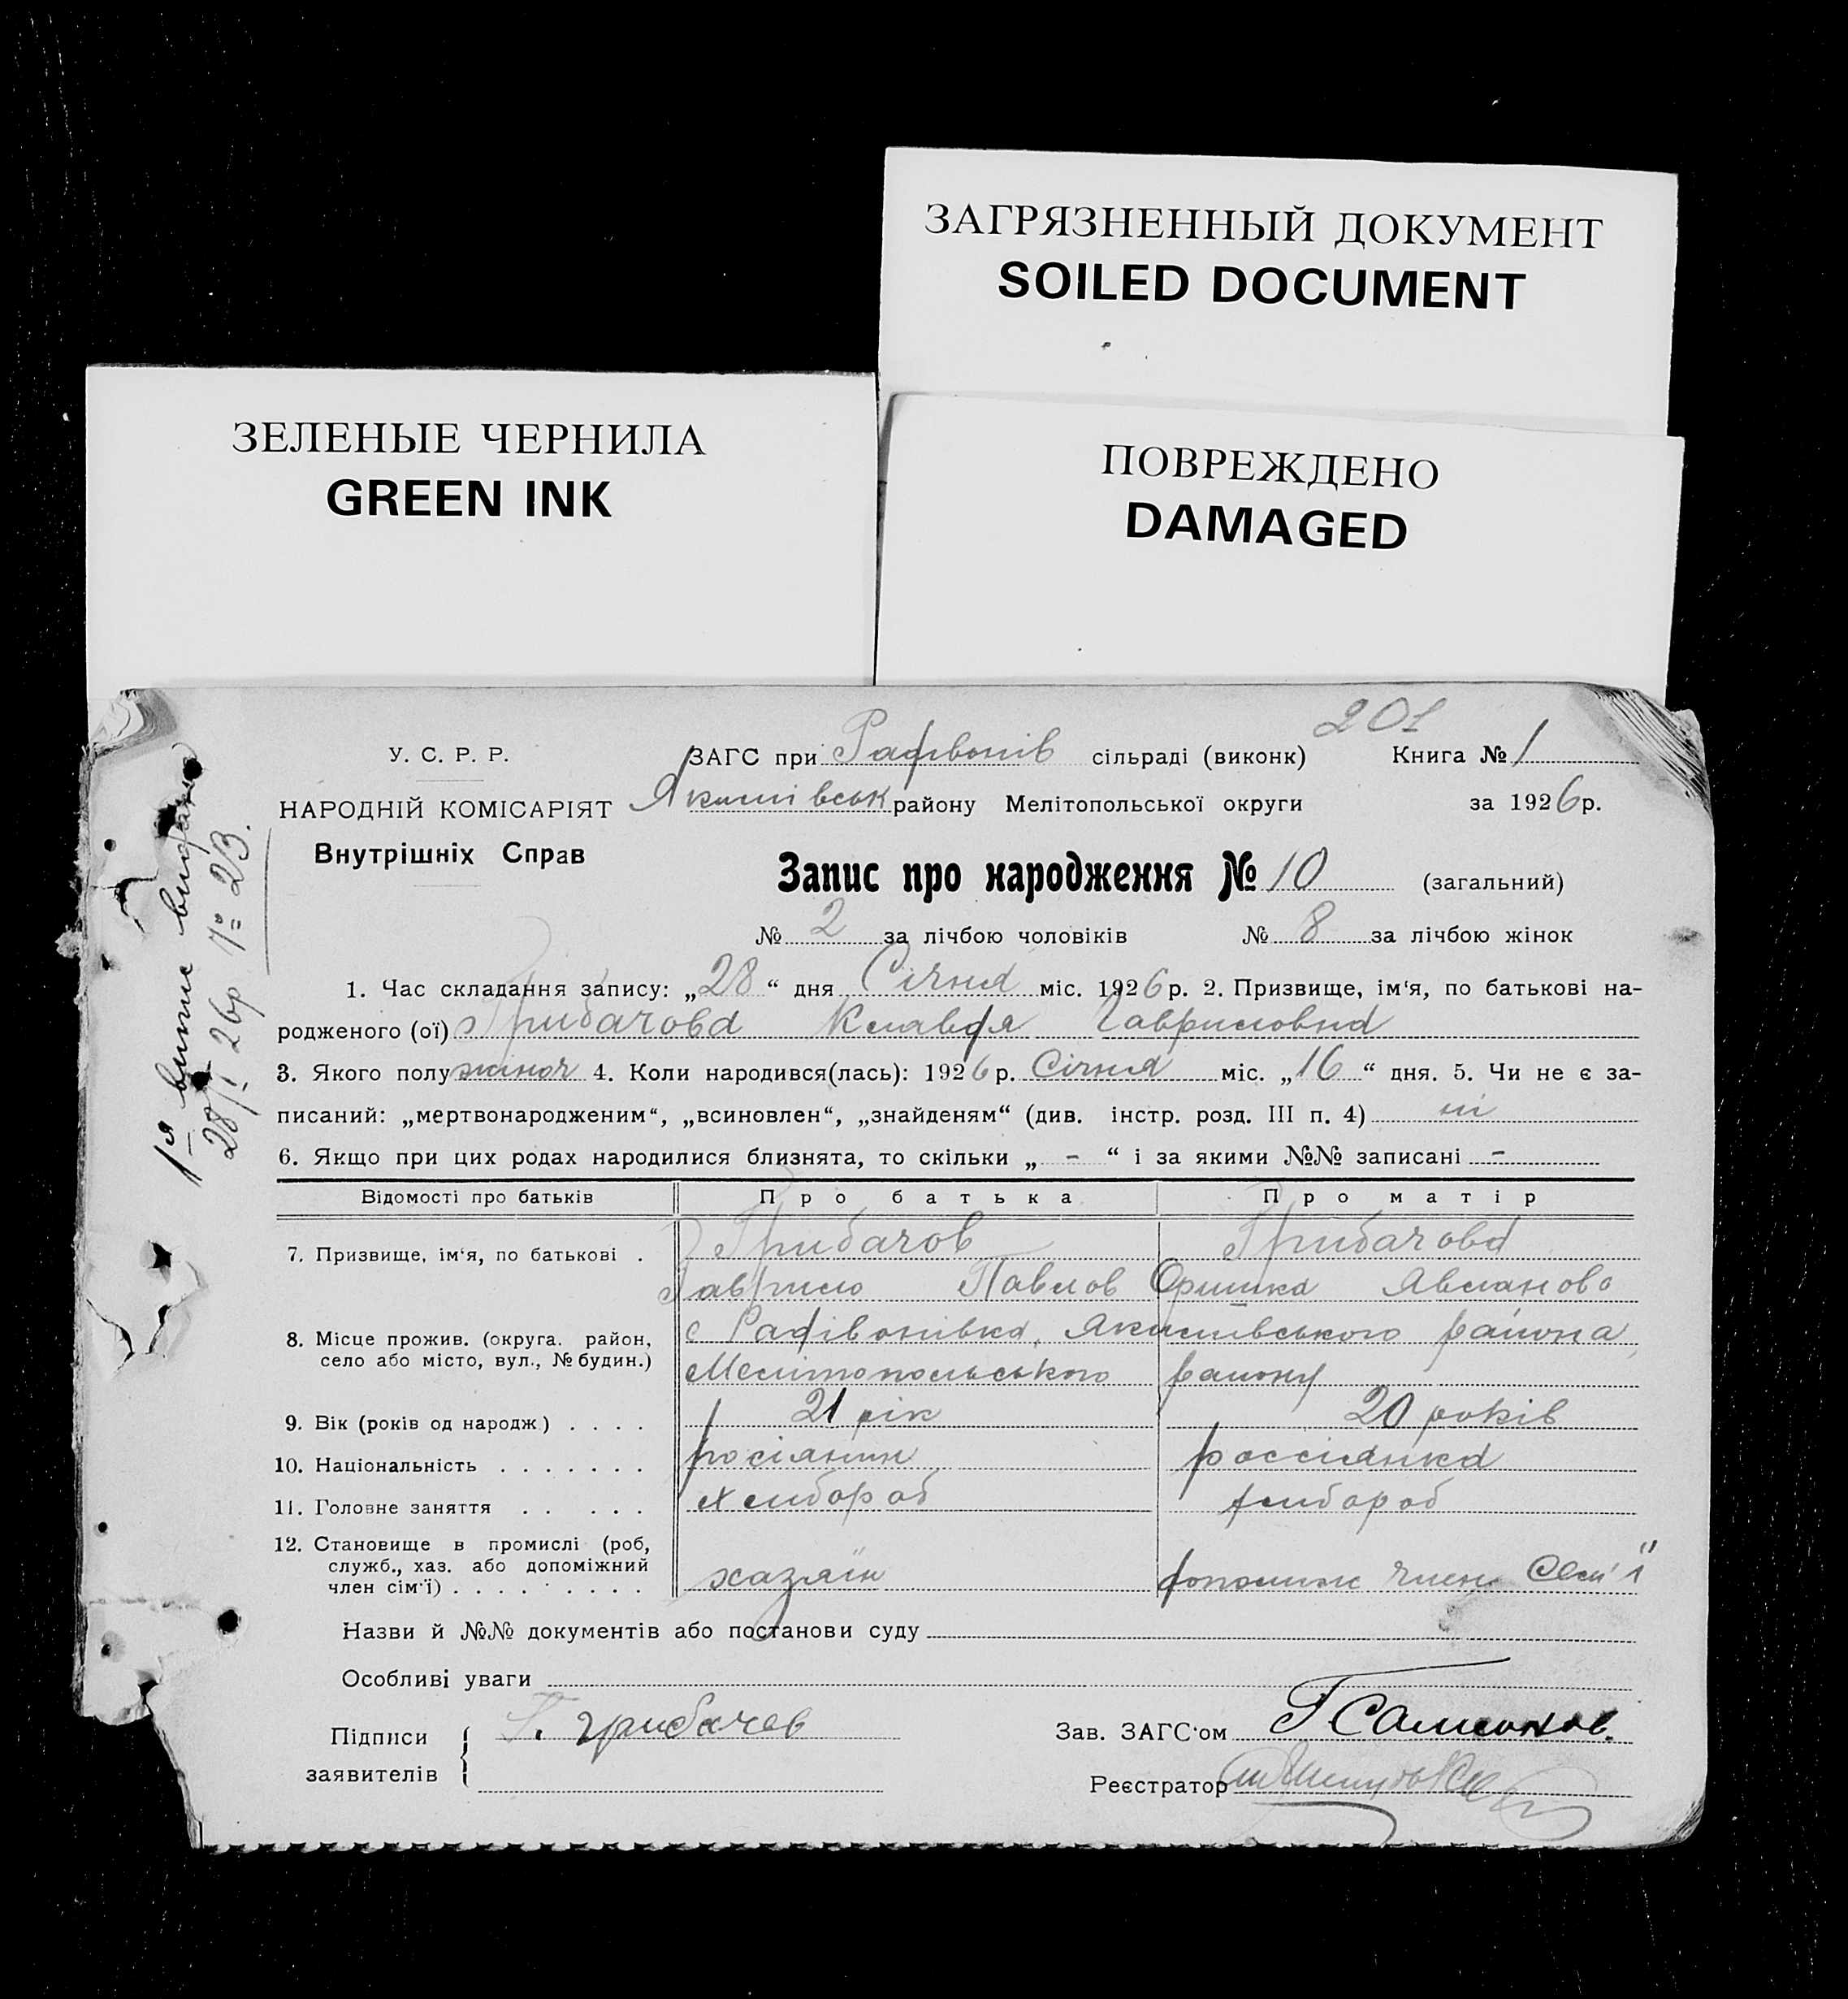 ЗАГРЯЗНЕННЫЙ ДОКУМЕНТ
SOILED DOCUMENT
ЗЕЛЕНЫЕ ЧЕРНИЛА
GREEN INK
ПОВРЕЖДЕНО
DAMAGED
201
У. С. Р. Р.
ЗАГС при Рафвонів сільраді (виконк) Книга № 1
НАРОДНІЙ КОМІСАРІЯТ
Якимівськ району Мелітопольської округи за 1926 р.
Внутрішніх Справ
Запис про народження № 10 (загальний)
№ 2 за лічбою чоловіків № 8 за лічбою жінок
1. Час складання запису: „28“ дня Січня міс. 1926 р. 2. Призвище, ім‘я, по батькові на-
родженого (ої) Грибачова Клавдя Гавриловна
3. Якого полу жіноч 4. Коли народився(лась): 1926 р. Січня міс. „16“ дня. 5. Чи не є за-
писаний: „мертвонародженим“, „всиновлен“, „знайденям“ (див. інстр. розд. III п. 4) ні
6. Якщо при цих родах народилися близнята, то скільки „ - “ і за якими №№ записані -
Відомості про батьків Про батька Про матір
7. Призвище, ім‘я, по батькові . Грибачов Грибачова
Гаврило Павлов Оришка
8. Місце прожив. (округа. район, с Рафівонівка, Якимівського района,
село або місто, вул., № будин.) Мелітопольського району
9. Вік (років од народж.) . . . . 21 рік 20 років
10. Національність . . . . . . . росіянин россіянка
11. Головне заняття . . . . . хлибороб хлибороб
12. Становище в промислі (роб,
служб., хаз. або допоміжний
член сім‘ї) . . . . . . . . . хазяїн допоміж член Сем'ї
Назви й №№ документів або постанови суду
Особливі уваги
Підписи Г. грибачев Зав. ЗАГС‘ом Г Самсонов.
заявителів
Реєстратор
1я випис видана
28/I 26р № 23.